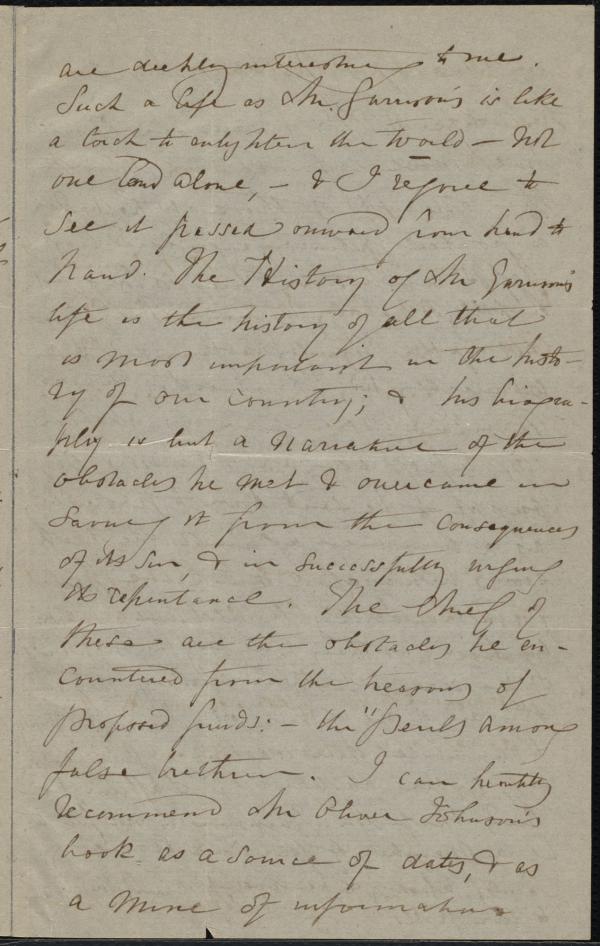 are deeply interesting to me.
Such a life as Mr. Garrison's is like
a torch to enlighten the world — not
one land alone, — & I rejoice to
see it passed onward from hand to
hand. The History of Mr Garrison's
life is the history of all that
is most important in the histo-
ry of our country; & his biogra-
phy is but a narrative of the
obstacles he met & overcame in
saving it from the consequences
of its sin, & in successfully urging
its repentance. The chief of
these are the obstacles he en-
countered from the treasons of
professed friends: — the "perils among
false brethren. I can heartily
recommend Mr Oliver Johnson's
book as a source of dates, & as
a mine of information